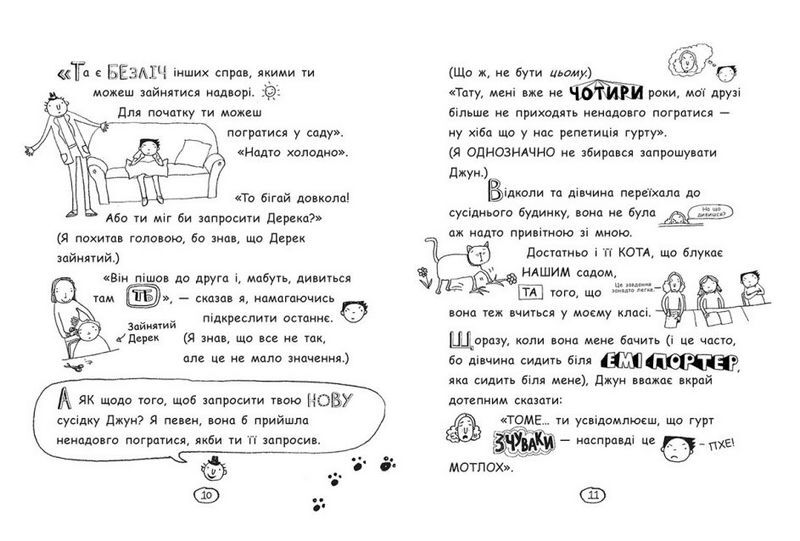 «Та є БЕЗЛІЧ інших справ, якими ти
можеш зайнятися надворі.
Для початку ти можеш
погратися у саду».
«Надто холодно».
«То бігай довкола!
Або ти міг би запросити Дерека?»
(Я похитав головою, бо знав, що Дерек
зайнятий.)
«Він пішов до друга і, мабуть, дивиться
там ТБ», — сказав я, намагаючись
підкреслити останнє.
Зайнятий
Дерек
(Я знав, що все не так,
але це не мало значення.)
А ЯК щодо того, щоб запросити твою НОВУ
сусідку Джун? Я певен, вона б прийшла
ненадовго погратися, якби ти її запросив.
10
(Що ж, не бути цьому.)
«Тату, мені вже не ЧОТИРИ роки, мої друзі
більше не приходять ненадовго погратися —
ну хіба що у нас репетиція гурту».
(Я ОДНОЗНАЧНО не збирався запрошувати
Джун.)
Відколи та дівчина переїхала до
сусіднього будинку, вона не була
аж надто привітною зі мною.
На що
дивишся?
Достатньо і її КОТА, що блукає
НАШИМ садом,
ТА того, що
вона теж вчиться у моєму класі.
Це завдання
занадто легке.
Щоразу, коли вона мене бачить (і це часто,
бо дівчина сидить біля ЕМІ ПОРТЕР,
яка сидить біля мене), Джун вважає вкрай
дотепним сказати:
«ТОМЕ... ти усвідомлюєш, що гурт
3 ЧУВАКИ — насправді це
МОТЛОХ».
– ПХЕ!
11